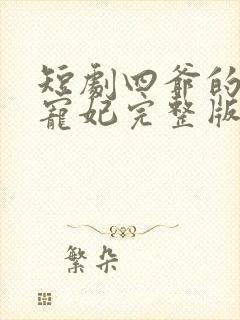 短劇四爺的
寵妃完整版
繁朵